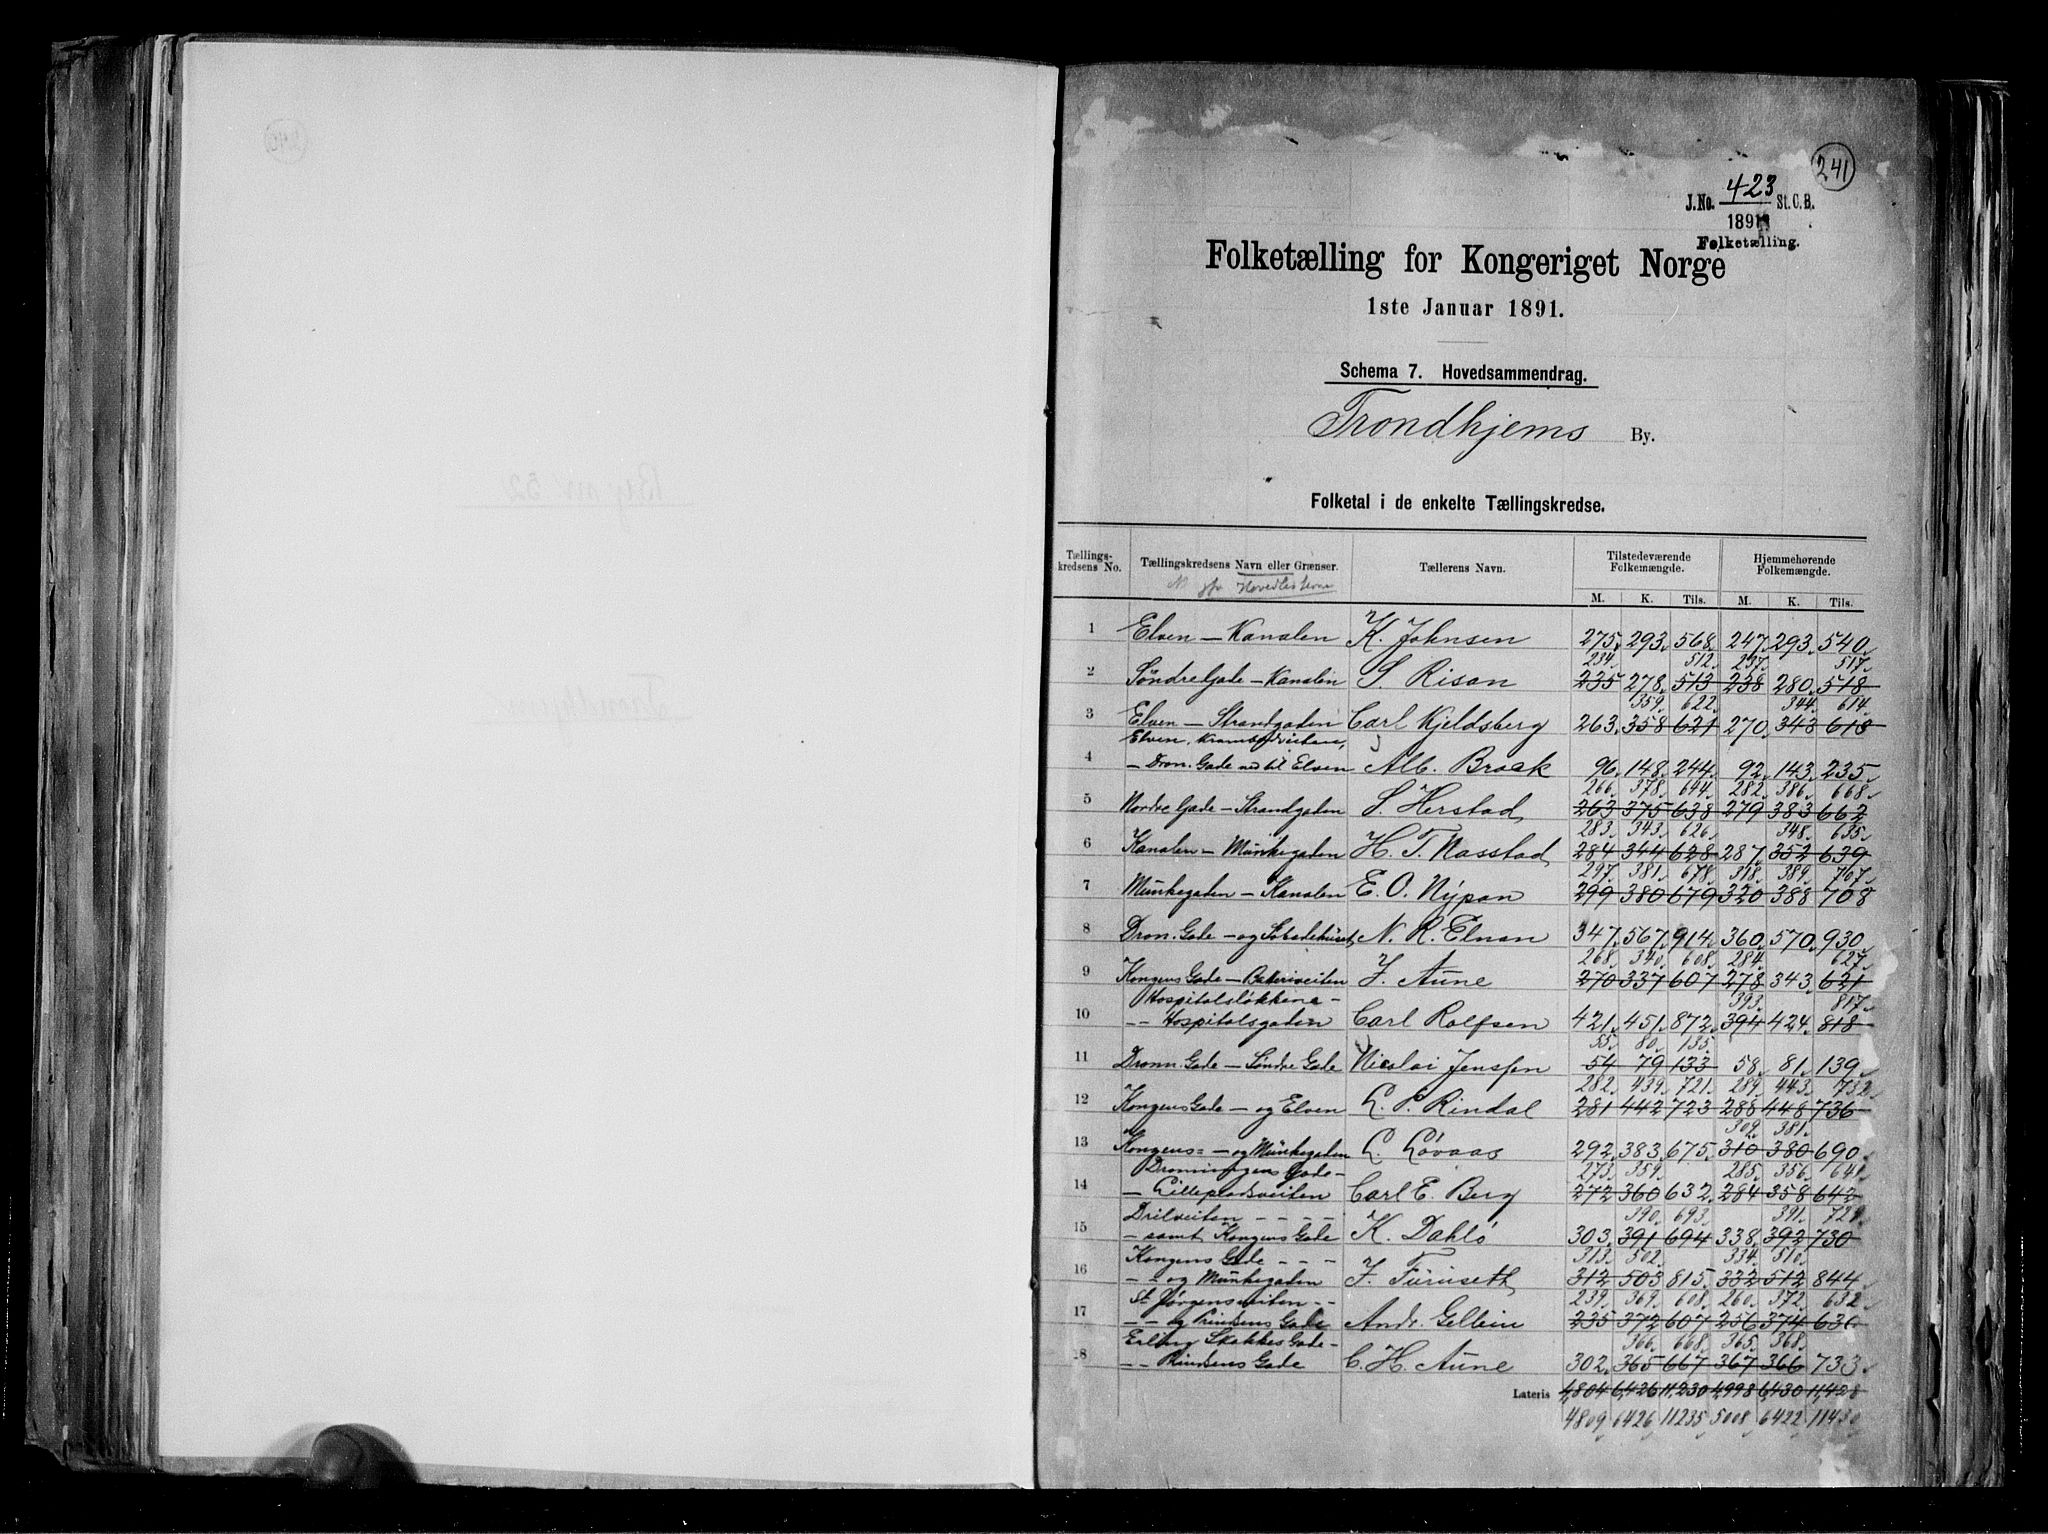 241
J. No. 423 St. C. B.
1891
Folketælling.
Folketælling for Kongeriget Norge
1ste Januar 1891.
Schema 7. Hovedsammendrag.
Trondhjems By.
Folketal i de enkelte Tællingskredse.
Tællings-kredsens No. Tællingskredsens Navn eller Grænser. Tællerens Navn. Tilstedeværende Folkemængde. Hjemmehørende Folkemængde.
Hovedlisterne
M. K. Tils. M. K. Tils.
1 Elven - Kanalen K. Johnsen 275 293 568 247 293 540
234 512 237 517
2 Søndre Gade - Kanalen S. Risan 235 278 513 238 280 518
359 622 344 614
3 Elven - Strandgaden Carl Kjeldsberg 263 358 621 270 343 613
Elven, Krambodveiten,
4 - Dron. Gade ned til Elven Alb. Braek 96 148 244 92 143 235
266 378 644 282 386 668
5 Nordre Gade - Strandgaden S. Herstad 263 375 638 279 383 662
283 343 626 348 635
6 Kanalen - Munkegaden H. T. Nasstad 284 344 628 287 352 639
297 381 678 318 389 707
7 Munkegaden - Kanalen E. O. Nypan 299 380 679 320 388 708
8 Dron. Gade - og Søbadehuset N. R. Elnan 347 567 914 360 570 930
268 340 608 284 627
9 Kongens Gade - Bakeriveiten J. Aune 270 337 607 278 343 621
Hospitalsløkkene - 393 817
10 - - Hospitalsgaden Carl Rolfsen 421 451 872 394 424 818
55 80 135
11 Dronn. Gade - Søndre Gade Nicolai Jenssen 54 79 133 58 81 139
282 439 721 289 443 732
12 Kongens Gade - og Elven L. P. Rindal 281 442 723 288 448 736
309 381
13 Kongens = - og Munkegaden L. Løvaas 292 383 675 310 380 690
Dronningens Gade - 273 359 285 356 641
14 - Lillepladsveiten Carl E. Berg 272 360 632 284 358 642
Drilveiten - - - - 390 693 391 729
15 - samt Kongens Gade K. Dahlø 303 391 694 338 392 730
Kongens Gade - - - 313 502 334 510
16 - - og Munkegaden J. Furuseth 312 503 815 332 512 844
St. Jørgensveiten - - 239 369 608 260 372 632
17 - - og Prindsens Gade Andr. Gellein 235 372 607 256 374 630
Erling Skakkes Gade - 366 668 365 368
18 - - Prindsens Gade C. H. Aune 302 365 667 367 366 733
Lateris 4,804 6,426 11,230 4,998 6,430 11,428
4809 6426 11235 5008 6422 11430